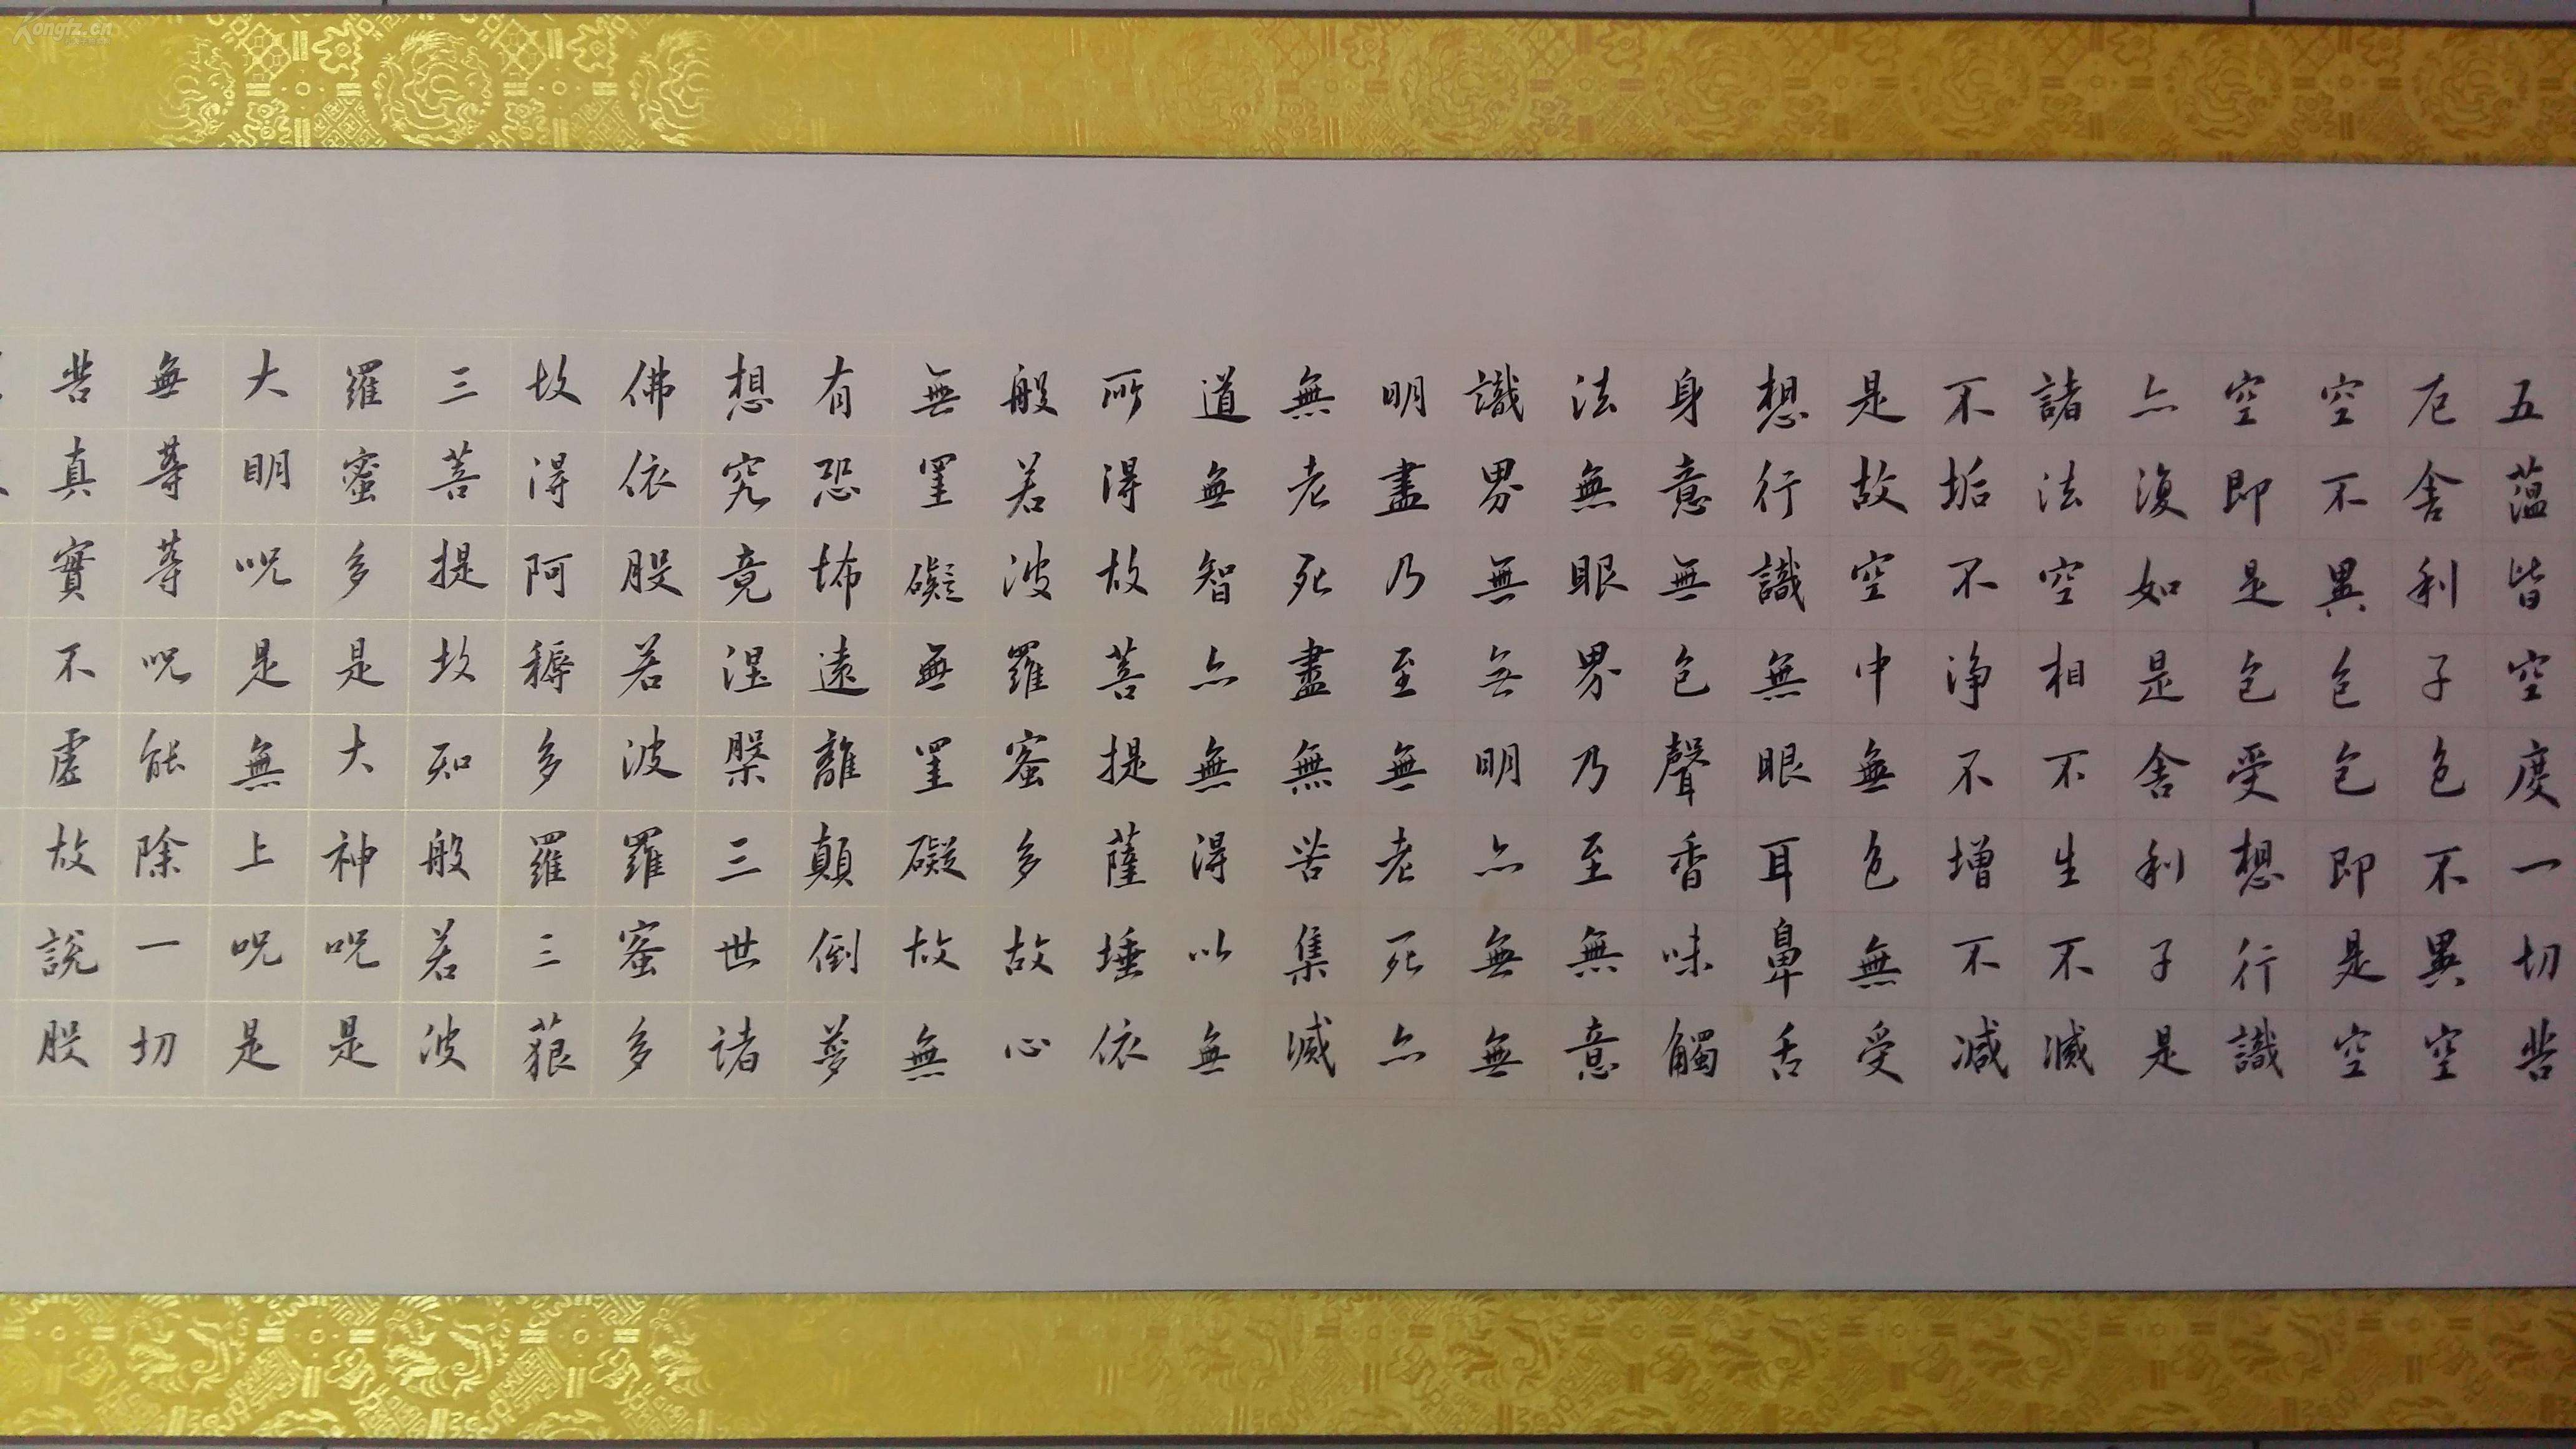 五蘊皆空度一切苦
厄舍利子色不異空
空不異色色即是空
空即是色受想行識
亦復如是舍利子是
諸法空相不生不滅
不垢不淨不增不減
是故空中無色無受
想行識無眼耳鼻舌
身意無色聲香味觸
法無眼界乃至無意
識界無無明亦無無
明盡乃至無老死亦
無老死盡無苦集滅
道無智亦無得以無
所得故菩提薩埵依
般若波羅蜜多故心
無罣礙無罣礙故無
有恐怖遠離顛倒夢
想究竟涅槃三世諸
佛依般若波羅蜜多
故得阿耨多羅三藐
三菩提故知般若波
羅蜜多是大神咒是
大明咒是無上咒是
無等等咒能除一切
苦真實不虛故說般
Kongfz.cn